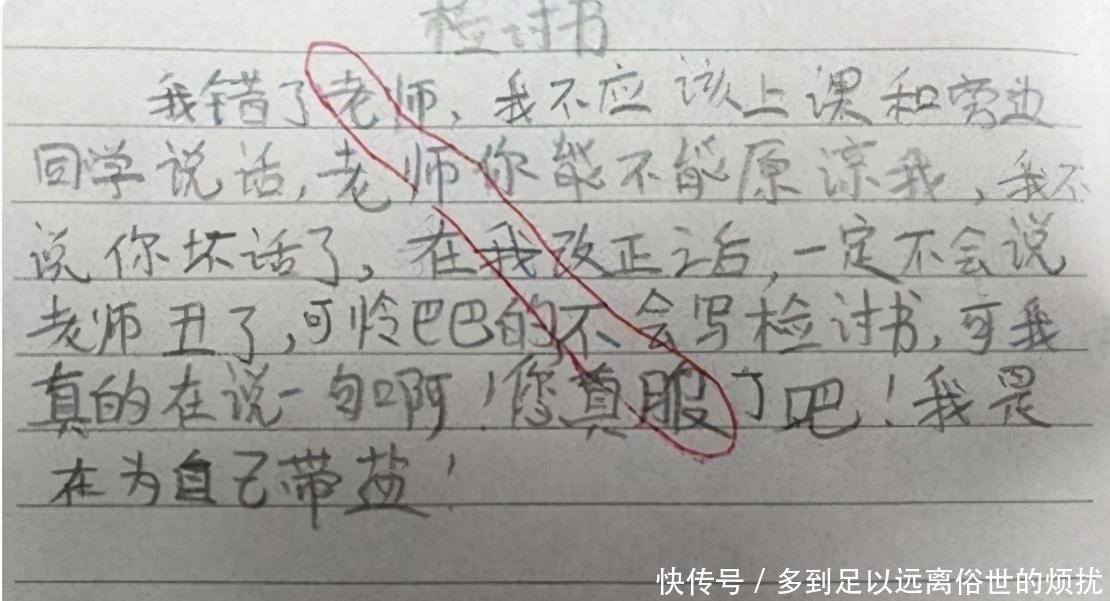 检讨书
我错了老师，我不应该上课和旁边
同学说话，老师你能不能原谅我，我不
说你坏话了，在我改正之后，一定不会说
老师丑了，可怜巴巴的不会写检讨书，可我
真的在说一句啊！您真服了吧！我是
在为自己带盐！
快传号 / 多到足以远离俗世的烦扰